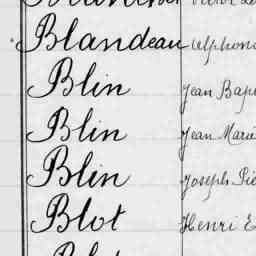 Blandeau Alphons
Blin Jean Bap
Blin Jean Marie
Blin Joseph Pie
Blot Henri E